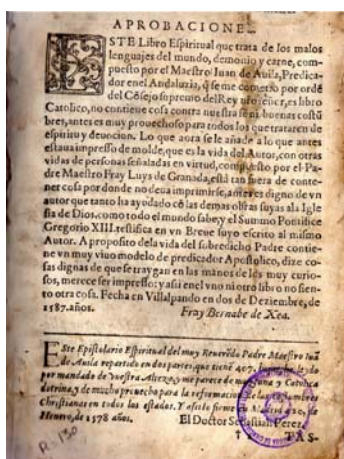 APROBACIONE
ESTE Libro Espiritual que trata de los malos
lenguajes del mundo, demonio y carne, com-
puesto por el Maestro Iuan de Auila, Predica-
dor enel Andaluzia, q̃ se me cometio por ordẽ
del Cõsejo supremo del Rey nrõ señor, es libro
Catolico, no contiene cosa contra nuestra fè ni buenas costũ
bres, antes es muy prouechoso para todos los que trataren de
espiritu y deuocion. Lo que aora se le añade a lo que antes
estaua impresso de molde, que es la vida del Autor, con otras
vidas de personas señaladas en virtud, compuesto por el Pa-
dre Maestro Fray Luys de Granada, està tan fuera de conte-
ner cosa por donde no deua imprimirse, antes es digno de vn
autor que tanto ha ayudado cõ las demas obras suyas ala Igle
sia de Dios, como todo el mundo sabe, y el Summo Pontifice
Gregorio XIII. testifica en vn Breue suyo escrito al mismo
Autor. A proposito dela vida del sobredicho Padre contie-
ne vn muy viuo modelo de predicador Apostolico, dize co-
sas dignas de que se traygan en las manos de los muy curio-
sos, merece ser impresso: y assi enel vno ni otro libro no sien-
to otra cosa. Fecha en Villalpando en dos de Deziembre, de
1587. años.
Fray Bernabe de Xea.
Este Epistolario Espiritual del muy Reuerẽdo Padre Maestro Iuã
de Auila repartido en dos partes, que tienẽ 407. he leydo
por mandado de vuestra Alteza, y me parece de muy buena y Catolica
dotrina, y de mucho prouecho para la reformacion de las costumbres
Christianas en todos los estados. Y assi lo firme en Madrid 20. de
Henero, de 1578 años.
El Doctor Sebastian Perez.
† TAS-
R-130